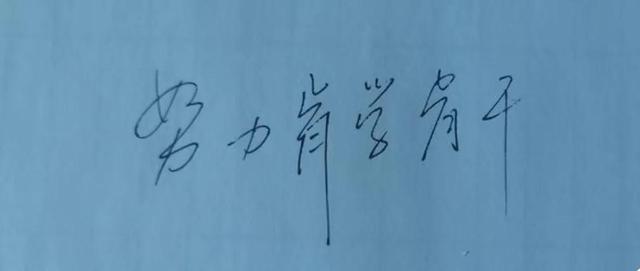 努力肯学肯干